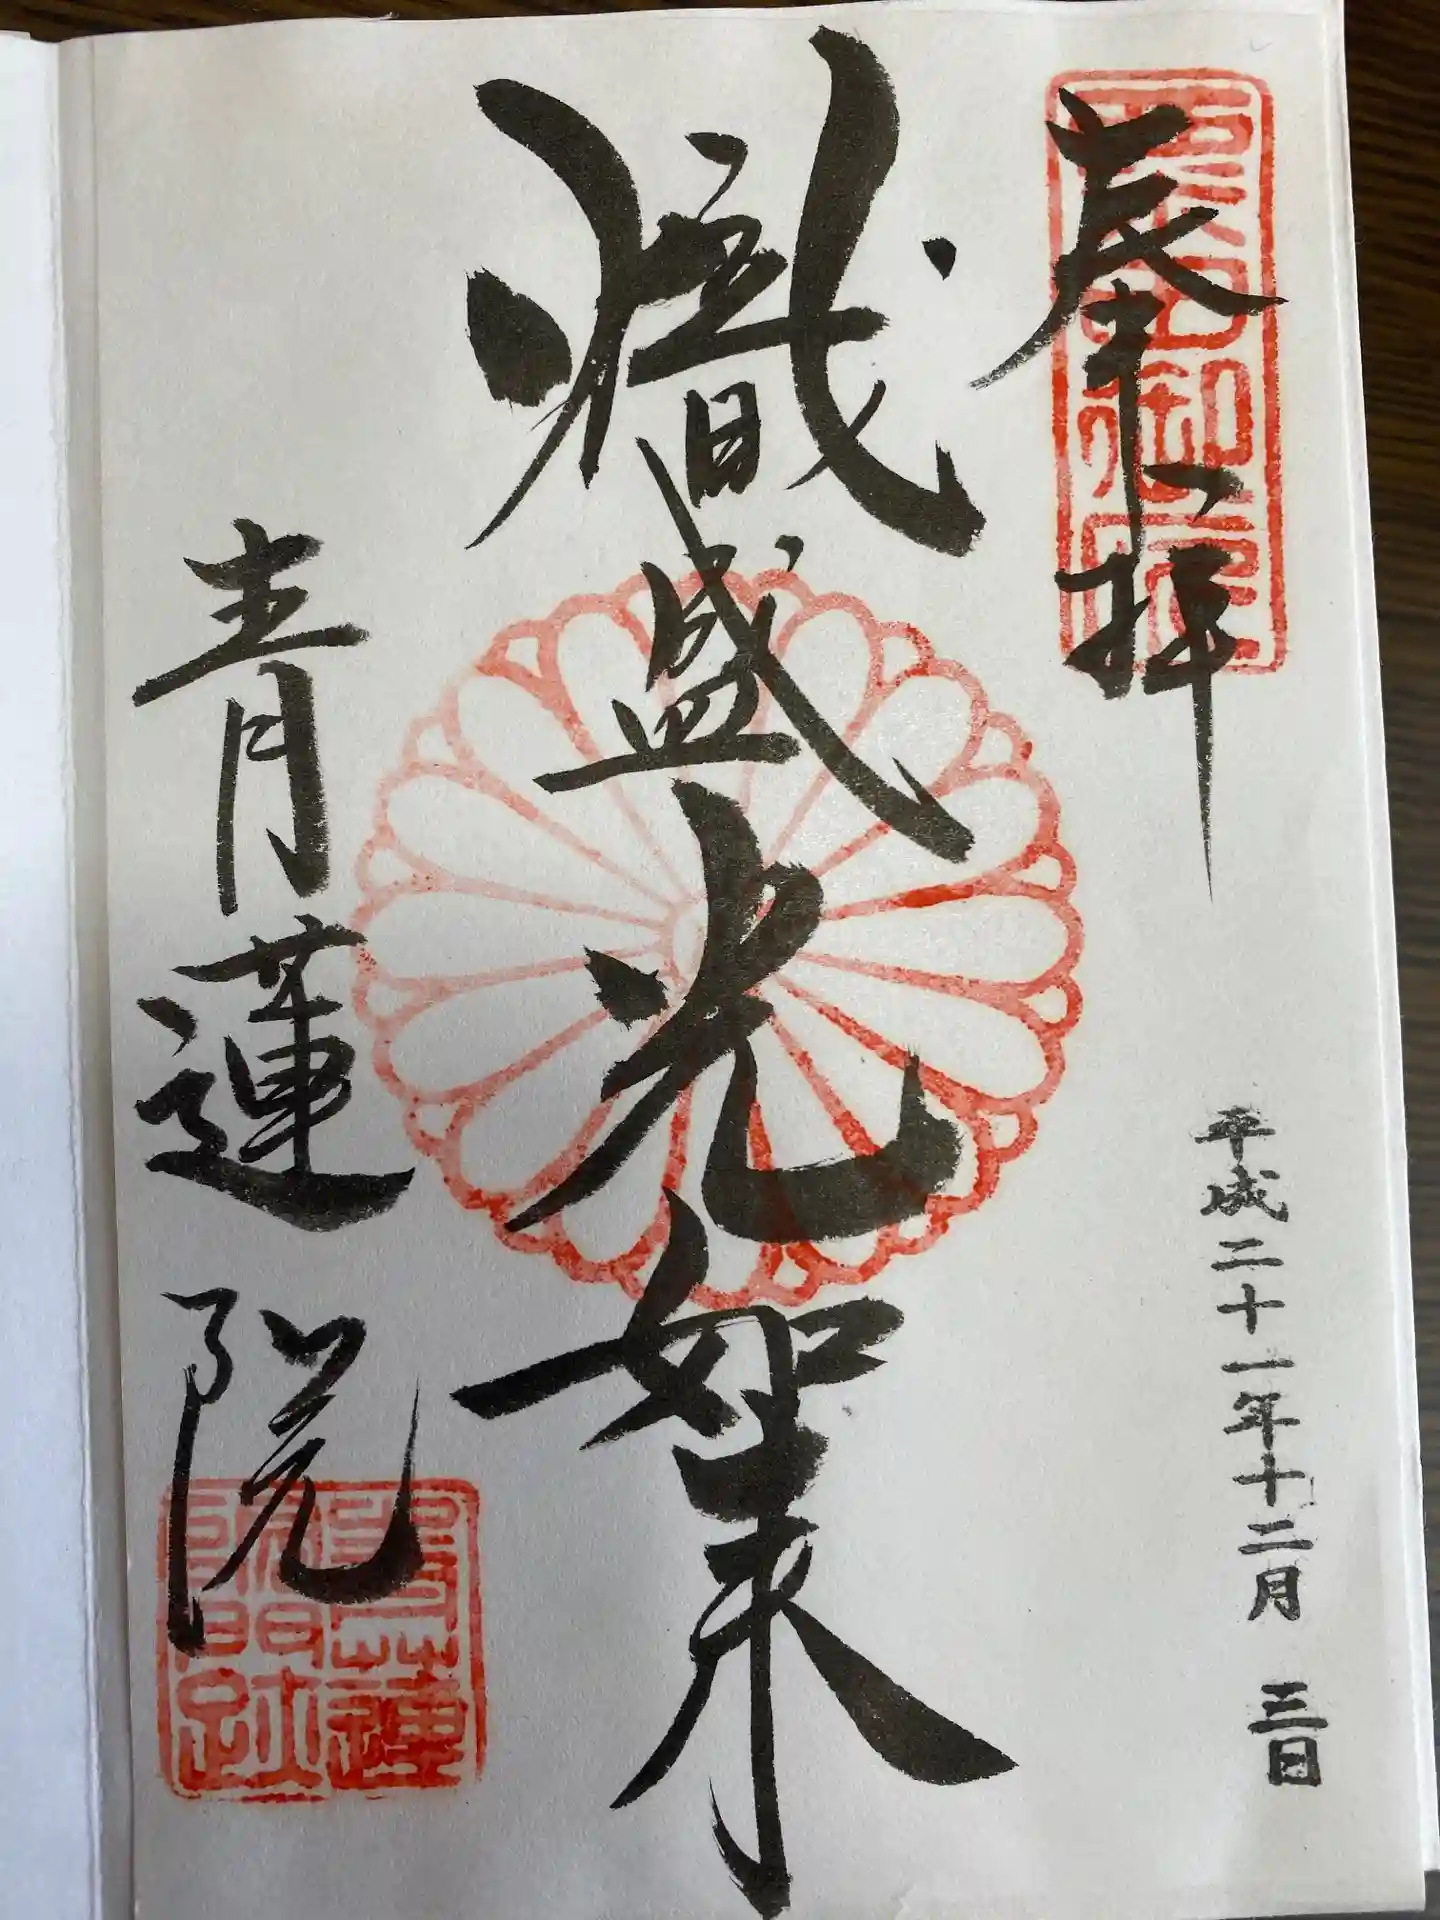 奉拝
平成二十一年十二月 三日
熾盛光如来
青蓮院